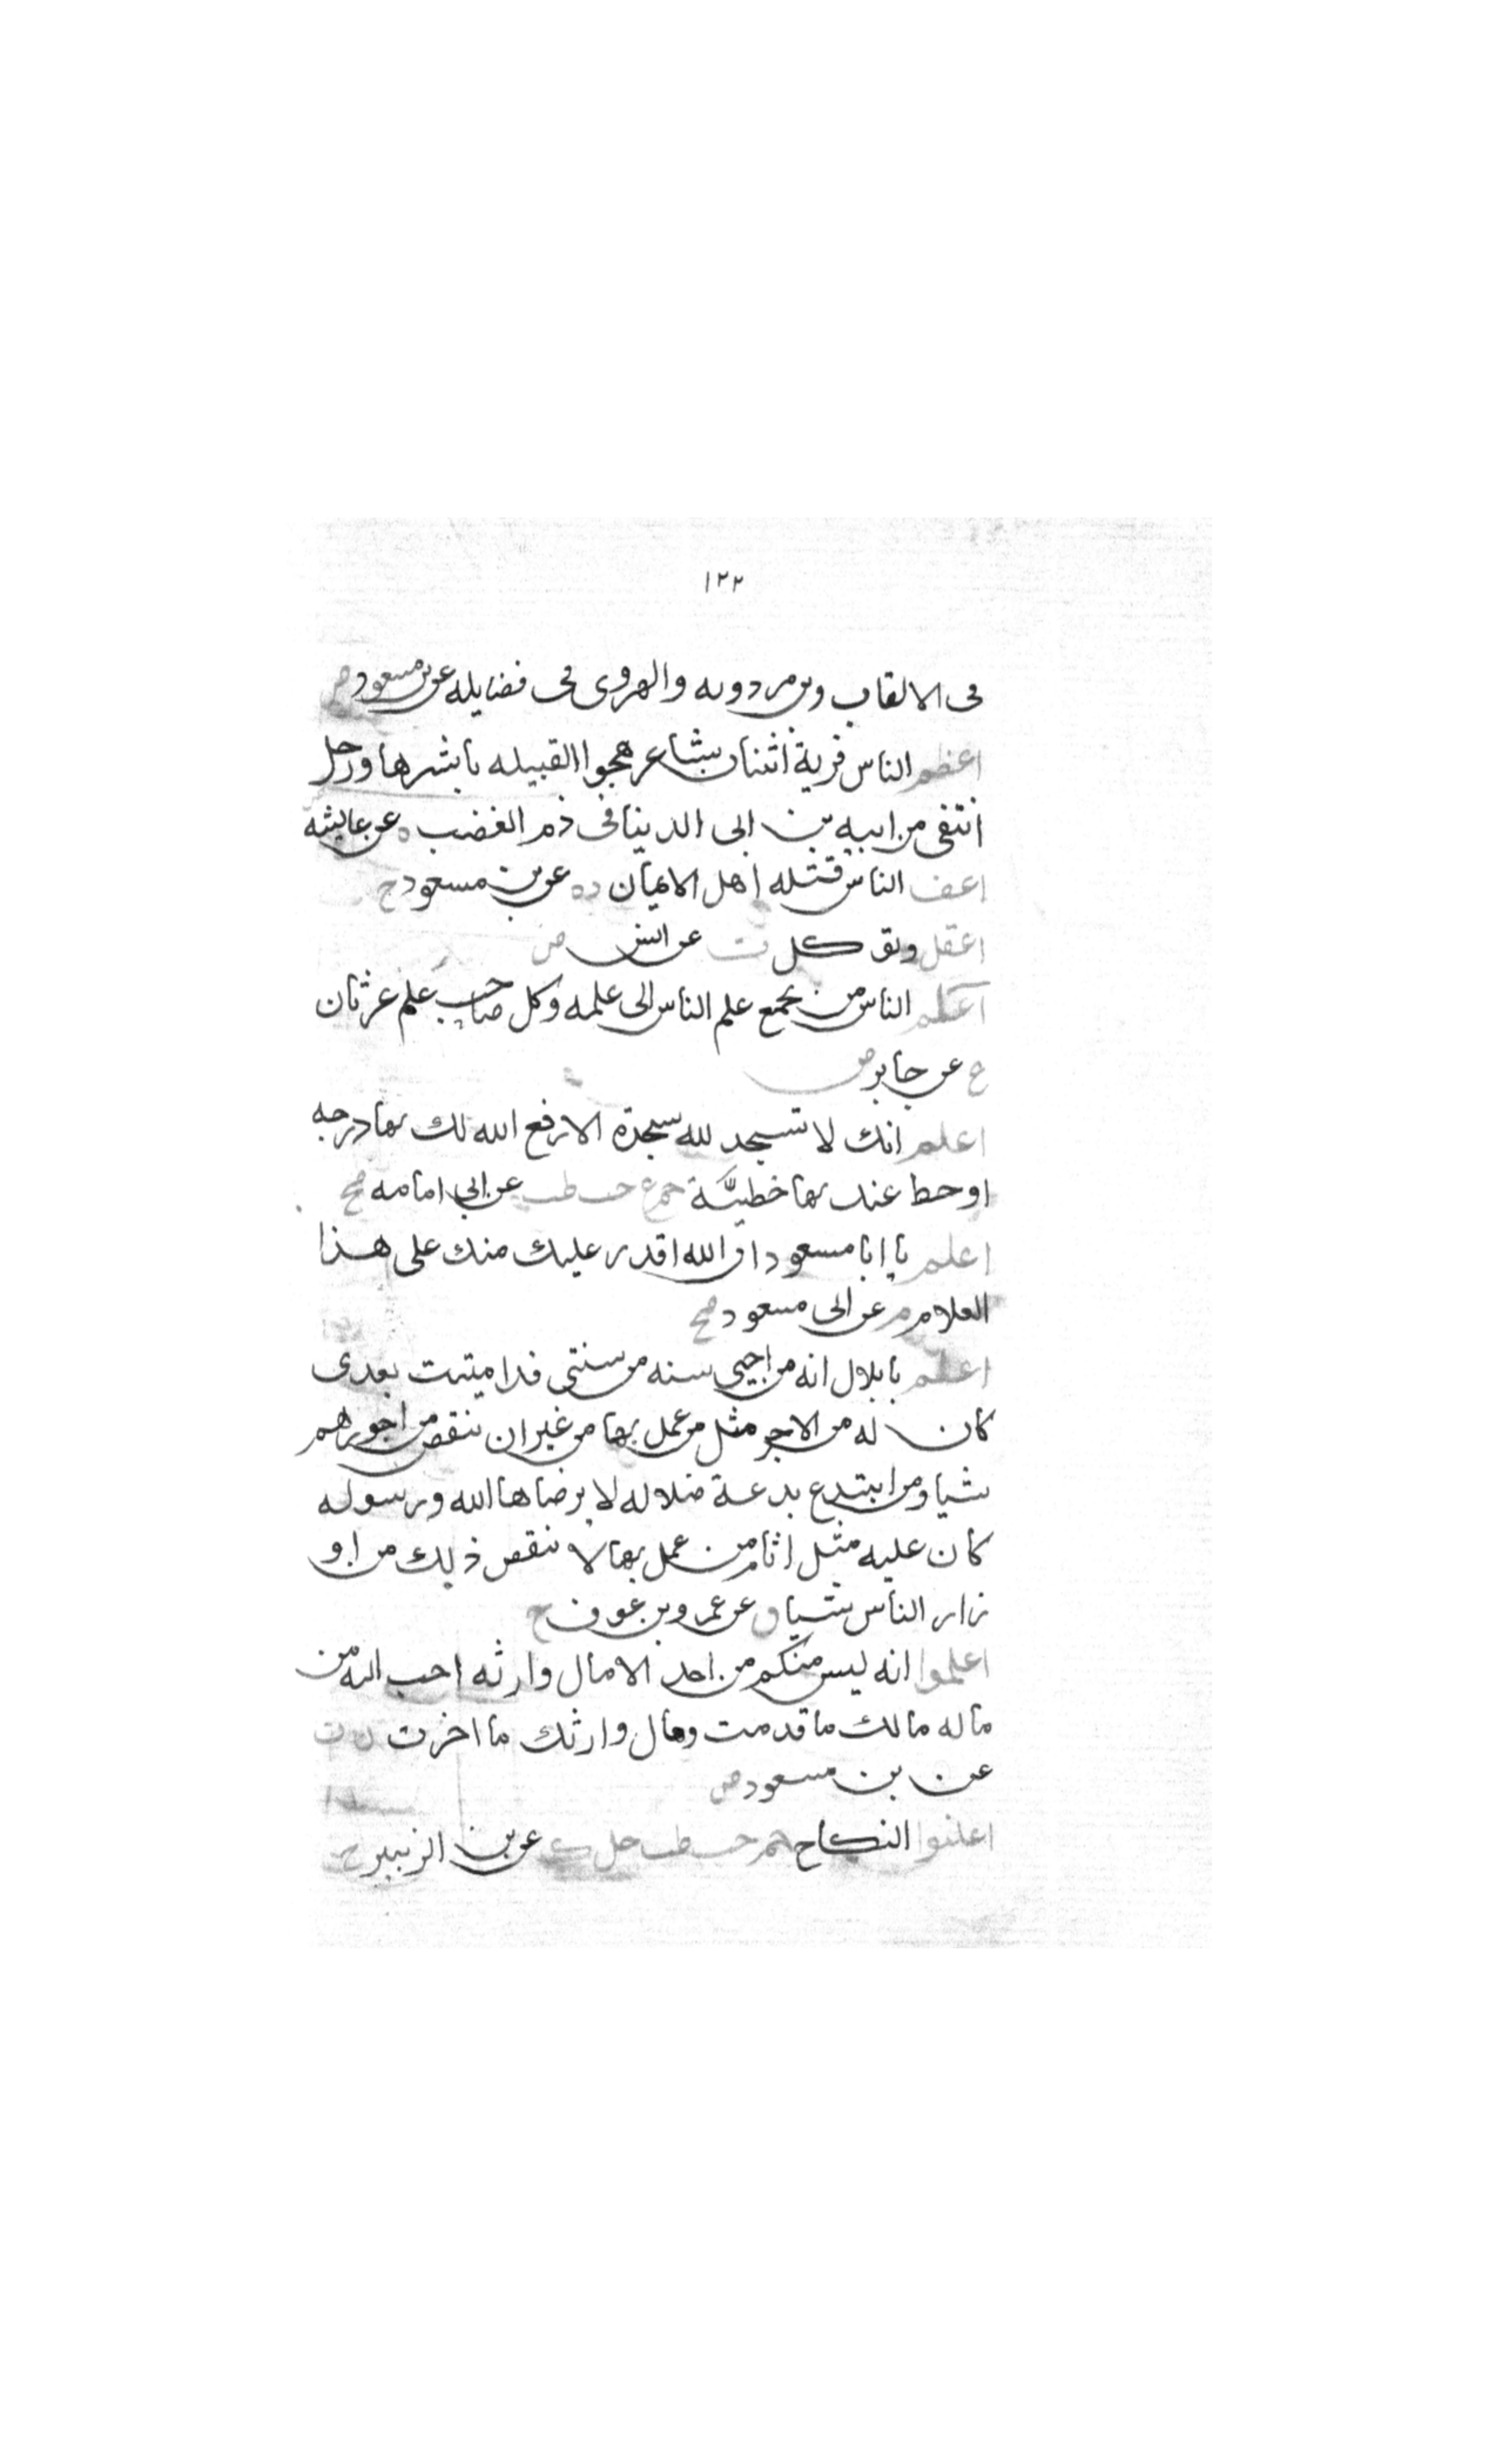 ١٢٢
فى الالقاب وبن مردويه والهروى فى فضايله عن بن مسعود ض
اعظم الناس فرية اثنان شاعر هجوا القبيله باشرها ورجل
انتفى من ابيه بن ابى الدنيا فى ذم الغضب ه عن عايشه
اعف الناس قتله اهل الايمان ده عن بن مسعود ح
اعقل وتوكل ت عن انس ض
اعلم الناس من يجمع علم الناس الى علمه وكل صاحب علم غرثان
ع عن جابر ض
اعلم انك لا تسجد لله سجدة الا رفع الله لك بها درجه
او حط عنك بها خطيّة حم ع حب طب عن ابى امامه صح
اعلم يا ابا مسعود ان الله اقدر عليك منك على هذا
الغلام م عن ابى مسعود صح
اعلم يا بلال انه من احيى سنه من سنتى قد اميتت بعدى
كان له من الاجر مثل من عمل بها من غير ان ينقص من اجورهم
شيا ومن ابتدع بدعة ضلاله لا يرضاها الله ورسوله
كان عليه مثل اثام من عمل بها لا ينقص ذلك من او
زار الناس شيا ت عن عمرو بن عوف ح
اعلموا انه ليس منكم من احد الا مال وارثه احب اليه من
ماله مالك ما قدمت ومال وارثك ما اخرت ن
عن بن مسعود ض
اعلنوا النكاح حم حب طب حل ك عن بن الزبير ح